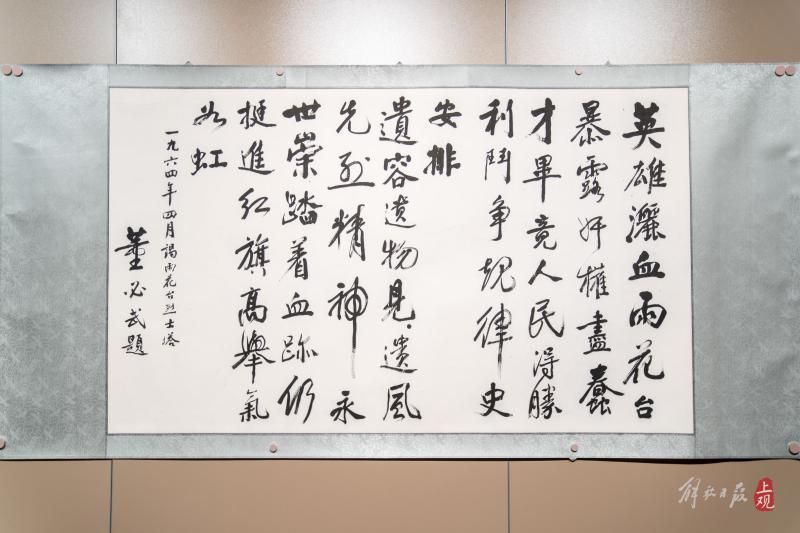 英雄灑血雨花台
暴露奸權盡蠢
才畢竟人民得勝
利鬥争規律史
安排
遺容遺物見遺風
先烈精神永
世崇踏着血跡仍
挺進紅旗高舉氣
如虹
一九六四年四月謁雨花台烈士塔
董必武題
解放日报
上观